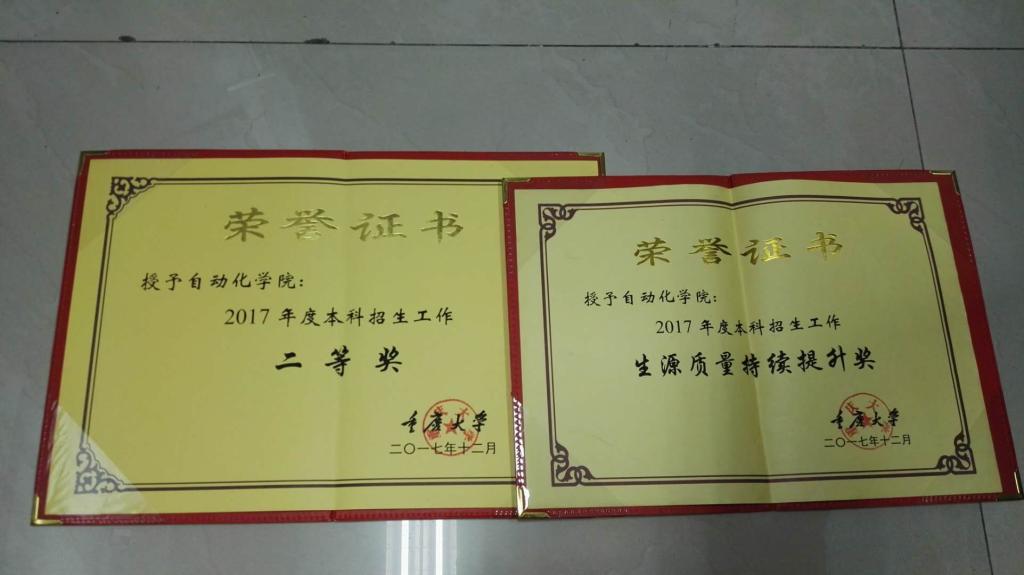 荣誉证书
授予自动化学院：
2017 年度本科招生工作
二等奖
重庆大学
二〇一七年十二月
荣誉证书
授予自动化学院：
2017 年度本科招生工作
生源质量持续提升奖
重庆大学
二〇一七年十二月